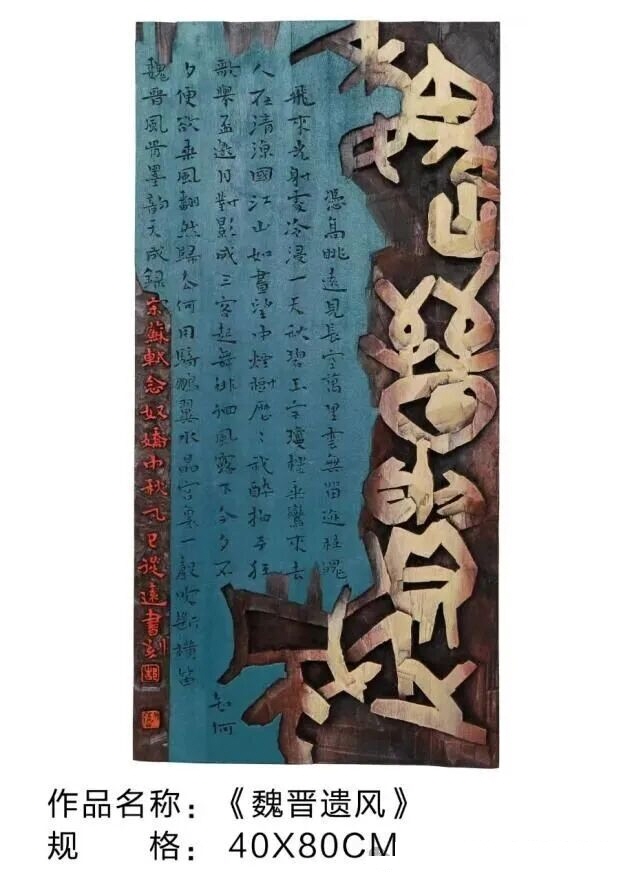 憑高眺遠見長空萬里雲無留迹桂魄
飛來光射處冷浸一天秋碧玉宇瓊樓乘鸞來去
人在清涼國江山如畫望中煙樹歷〻我醉拍手狂
歌舉盃邀月對影成三客起舞徘徊風露下今夕不知何
夕便欲乘風翻然歸去何用騎鵬翼水晶宮裏一聲吹斷橫笛
魏晉風骨墨韵天成録宋蘇軾念奴嬌中秋乙巳從遠書刻
作品名称：《魏晋遗风》
规 格：40X80CM